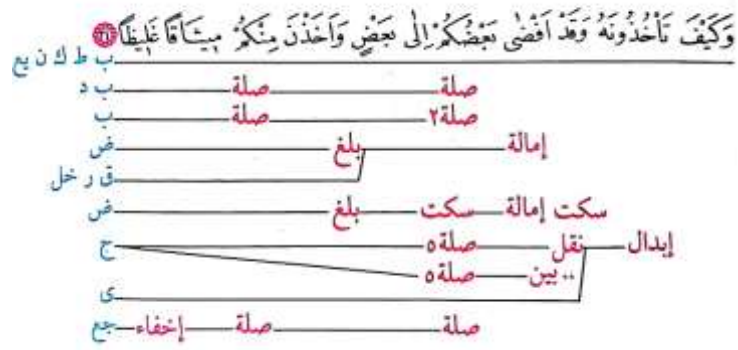 وَكَيْفَ تَأْخُذُونَهُ وَقَدْ أَفْضَىٰ بَعْضُكُمْ إِلَىٰ بَعْضٍ وَأَخَذْنَ مِنْكُمْ مِيثَاقًا غَلِيظًا ٢١
ب ط ك ن يع
صلة صلة ب د
صلة٢ صلة ب
إمالة بلغ ض
ق ر خل
سكت إمالة سكت بلغ ض
إبدال نقل صلة٥ ج
بين صلة٥
ى
صلة صلة إخفاء جع